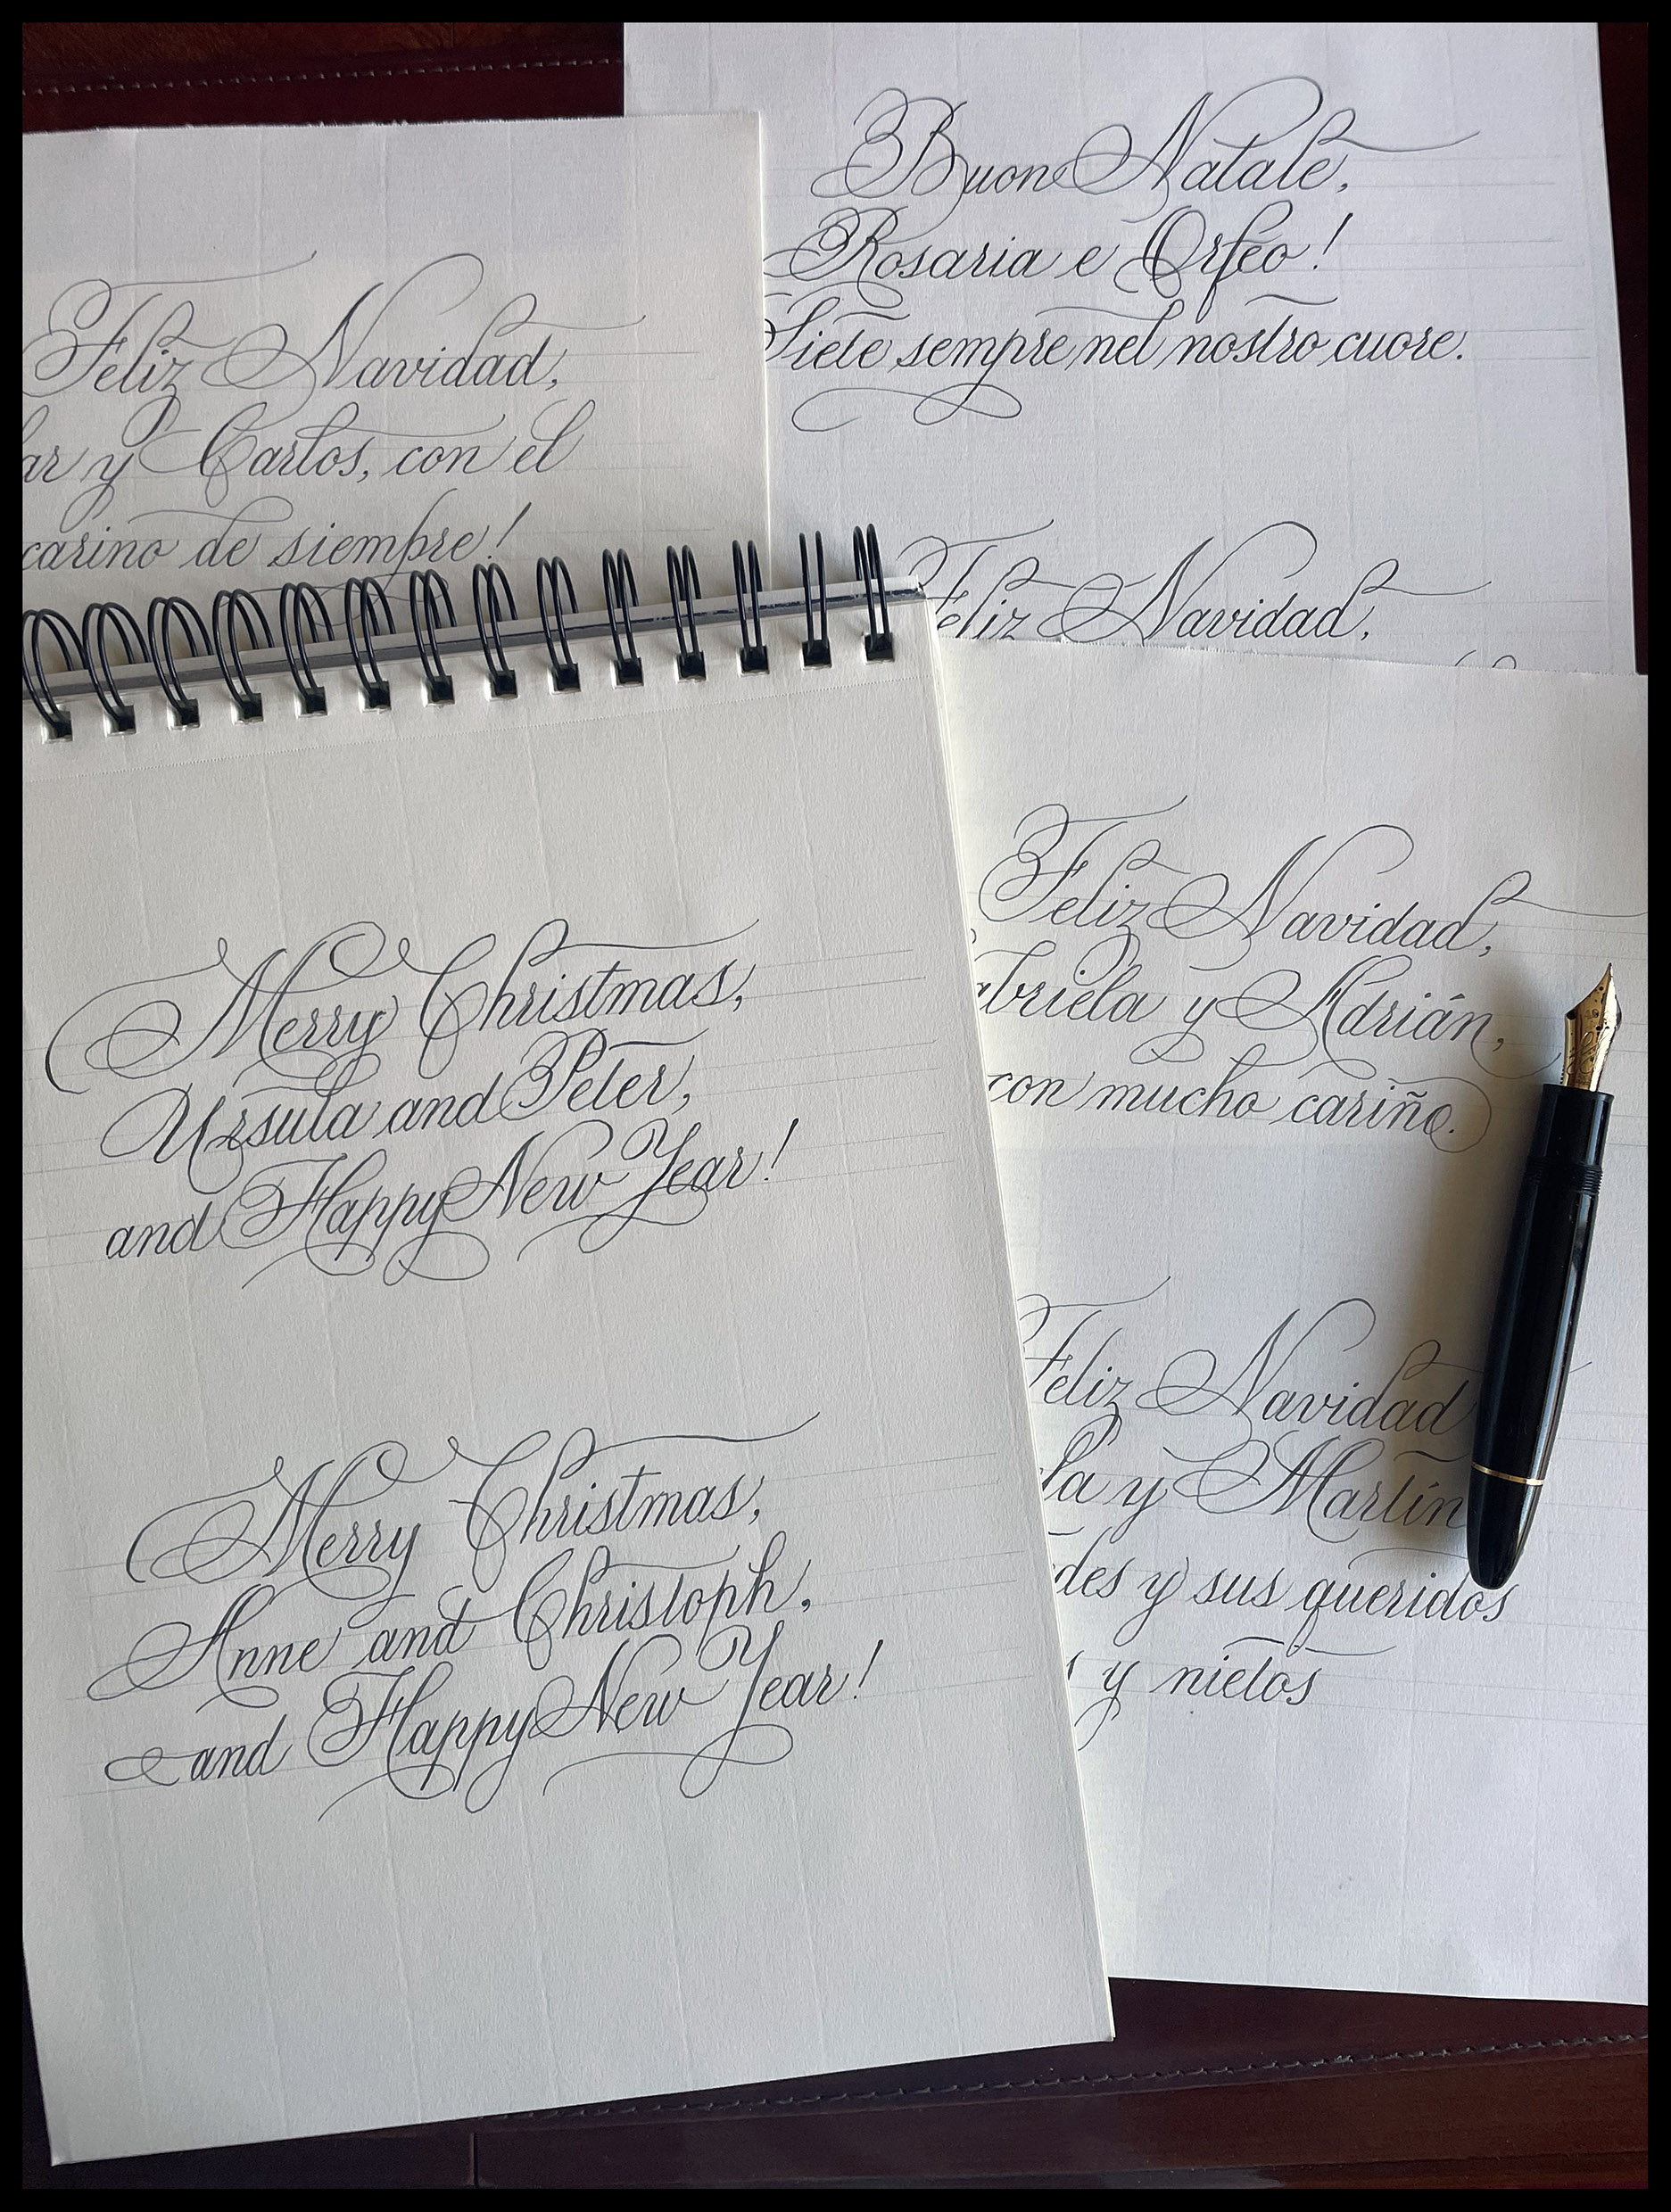 Feliz Navidad,
y Carlos, con el
carino de siempre!
Buon Natale,
Rosaria e Orfeo!
Siete sempre nel nostro cuore.
Feliz Navidad,
Merry Christmas,
Ursula and Peter,
and Happy New Year!
Merry Christmas,
Anne and Christoph,
and Happy New Year!
Feliz Navidad,
abriela y Adrián,
con mucho cariño.
Feliz Navidad
y Martín
y sus queridos
y nietos